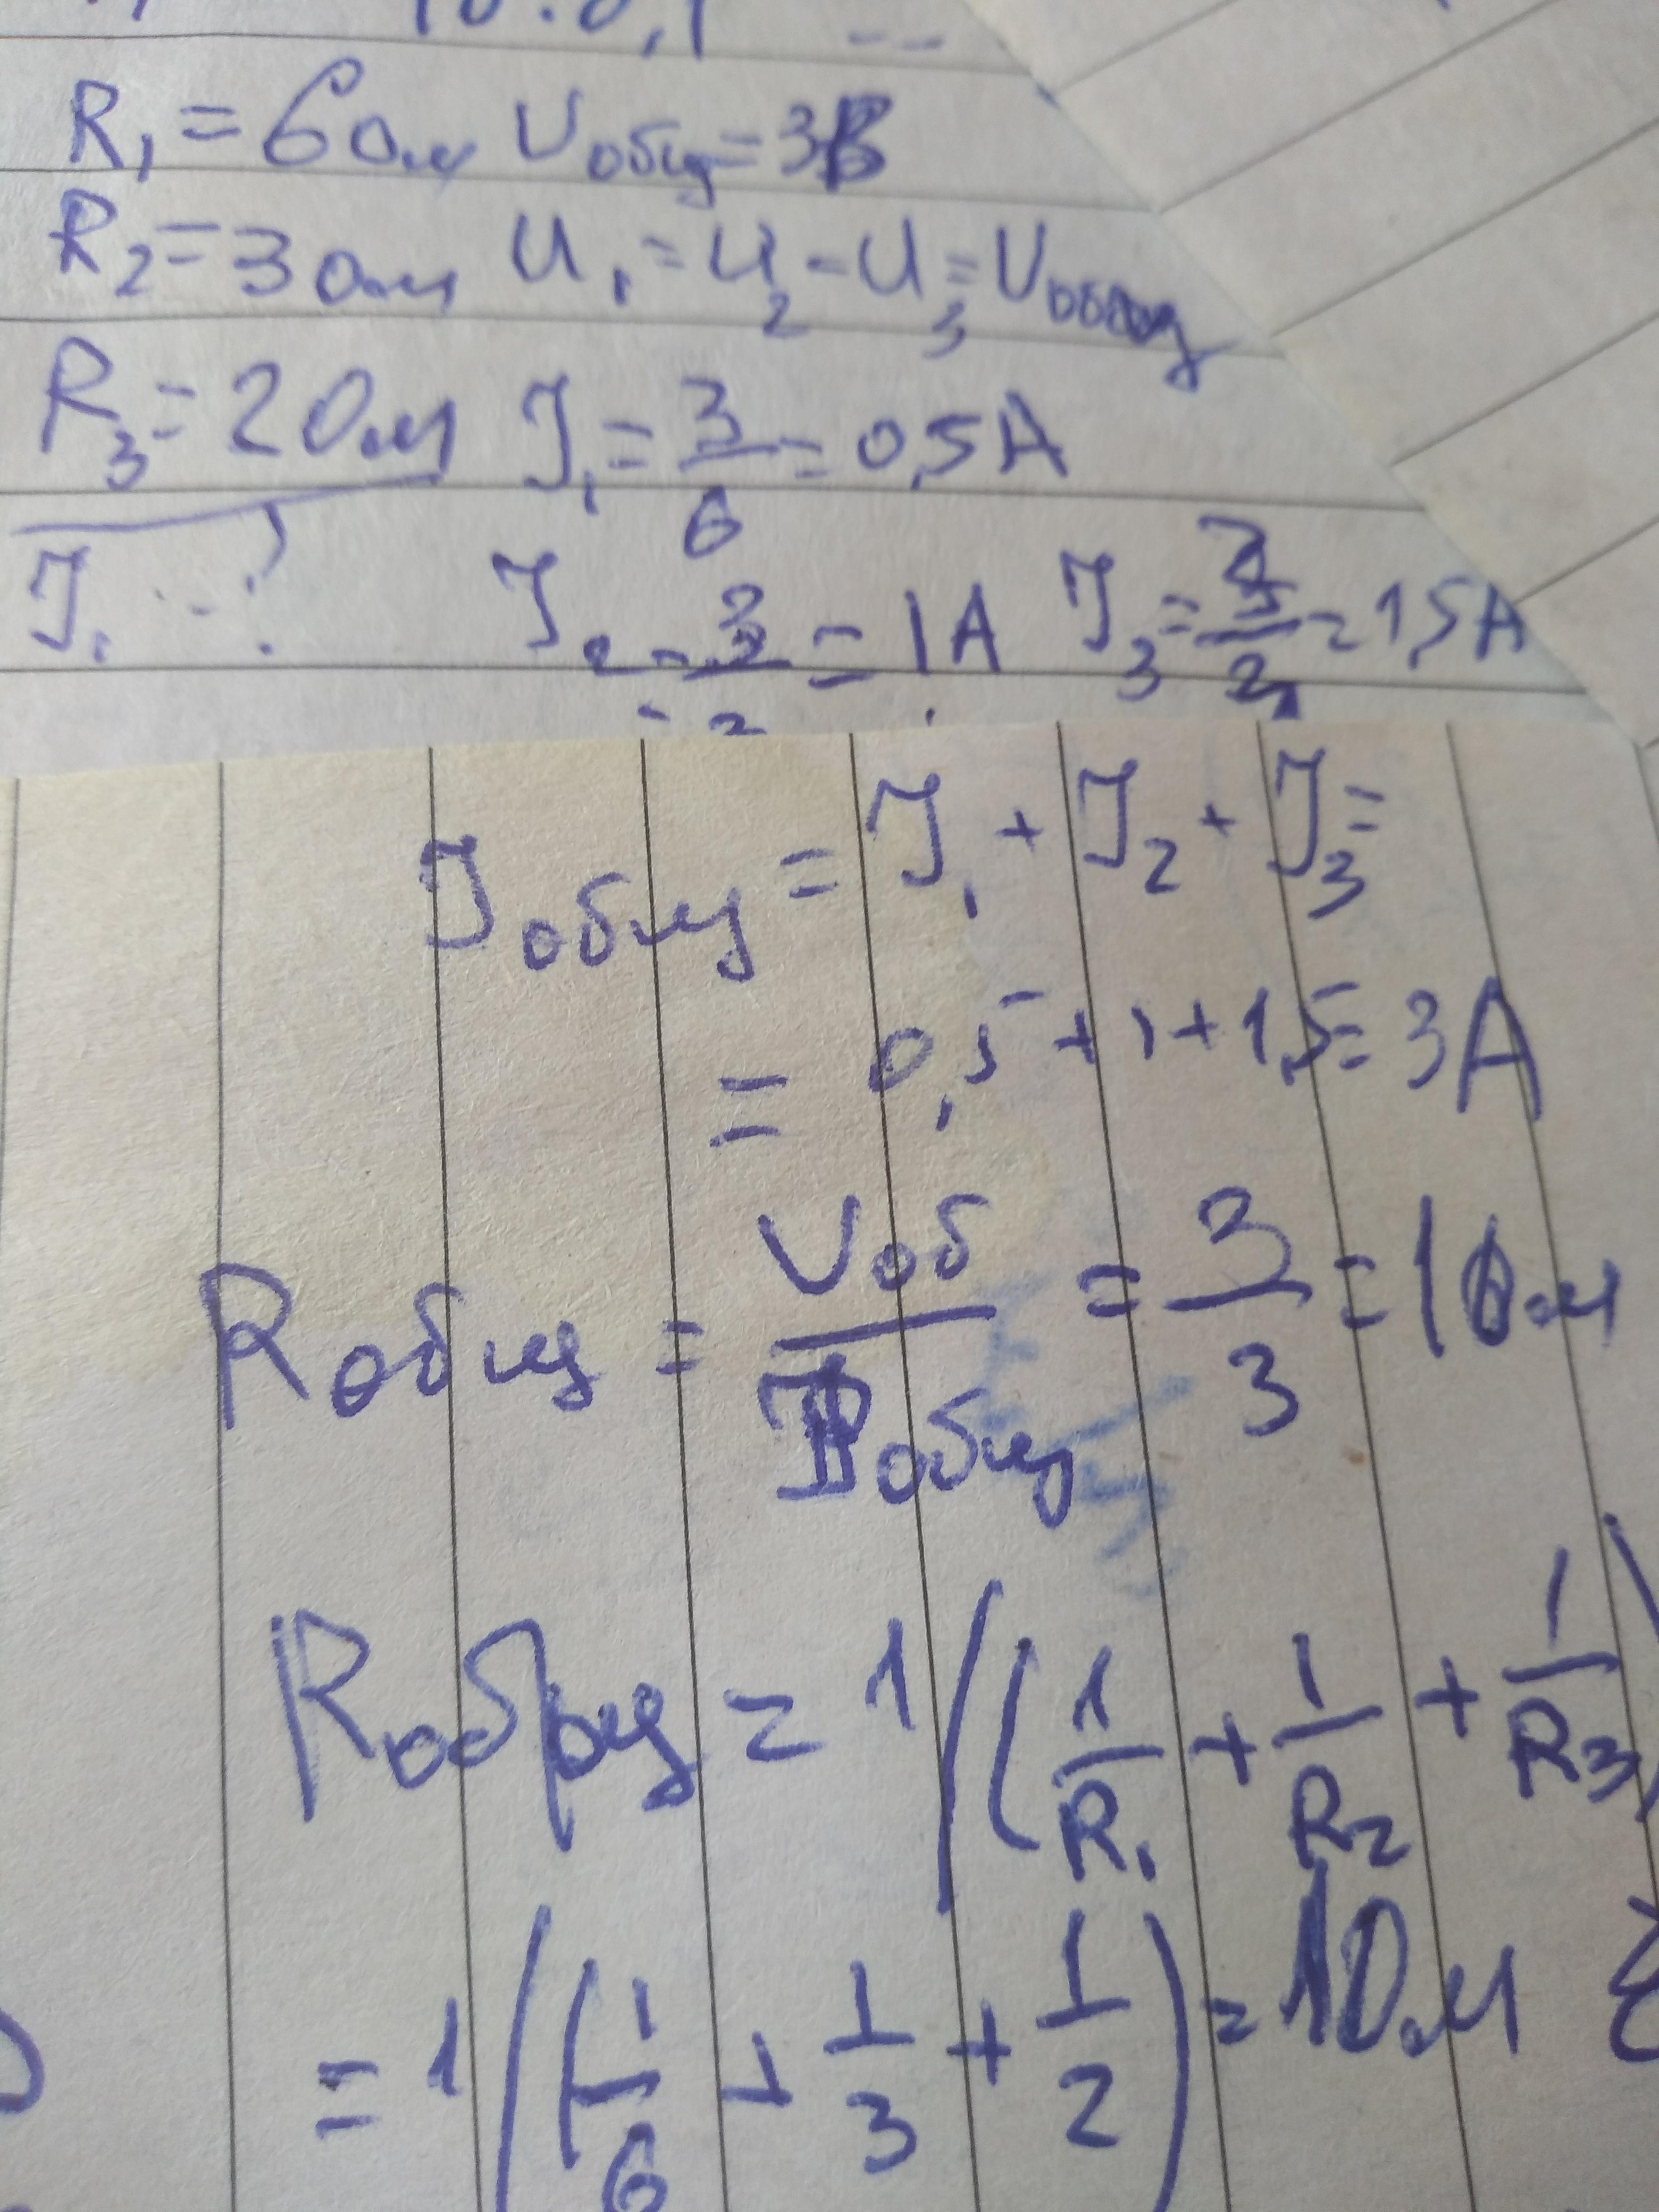 R₁ = 6 Ом Uобщ = 3В
R₂ = 3 Ом U₁ = U₂ = U₃ = Uобщ
R₃ = 2 Ом I₁ = 3/6 = 0,5 А
I₁ - ? I₂ = 3/3 = 1 А I₃ = 3/2 = 1,5 А
Iобщ = I₁ + I₂ + I₃ =
= 0,5 + 1 + 1,5 = 3 А
Rобщ = Uоб/Iобщ = 3/3 = 1 Ом
Rобщ = 1/(1/R₁ + 1/R₂ + 1/R₃)
= 1/(1/6 + 1/3 + 1/2) = 1 Ом